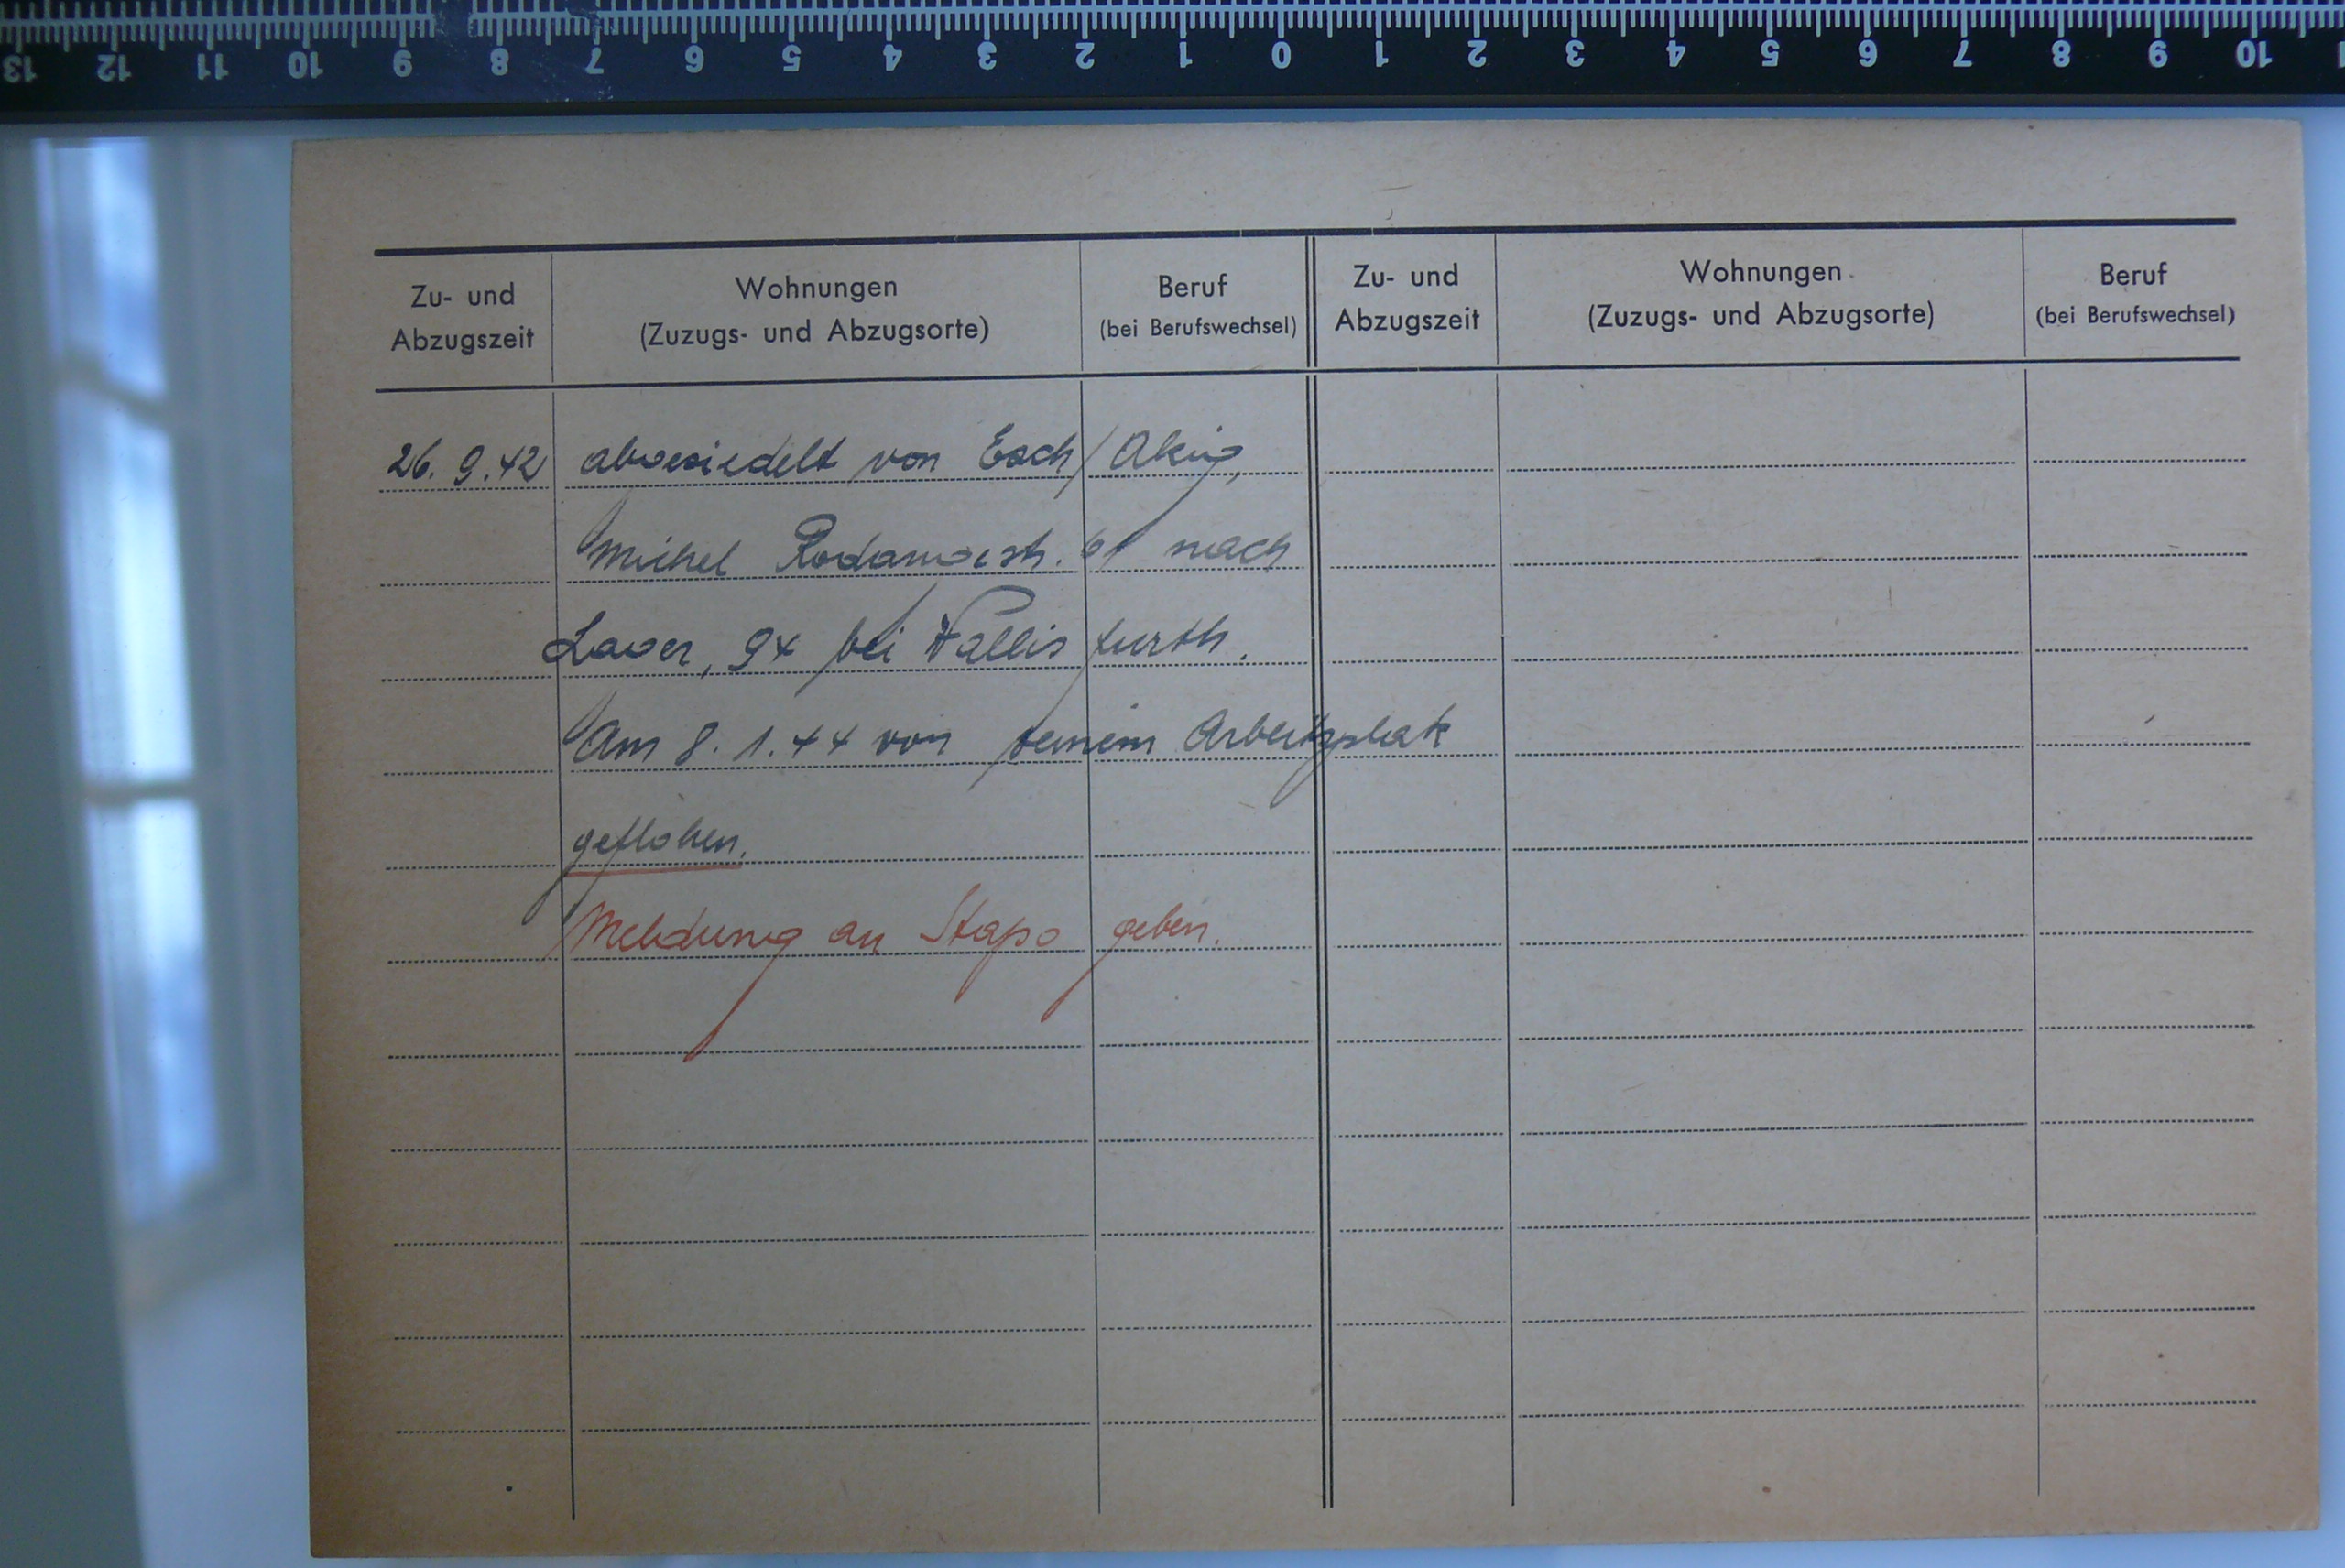 13 12 11 10 9 8 7 6 5 4 3 2 1 0 1 2 3 4 5 6 7 8 9 10
Zu- und Abzugszeit
Wohnungen (Zuzugs- und Abzugsorte)
Beruf (bei Berufswechsel)
Zu- und Abzugszeit
Wohnungen (Zuzugs- und Abzugsorte)
Beruf (bei Berufswechsel)
26. 9. 42 abgesiedelt von Esch/Alzig,
Michel Rodangestr. 61 nach
Lager, 94 bei Wallisfurth.
Am 8. 1. 44 von seinem Arbeitsplatz
geflohen.
Meldung an Stapo geben.